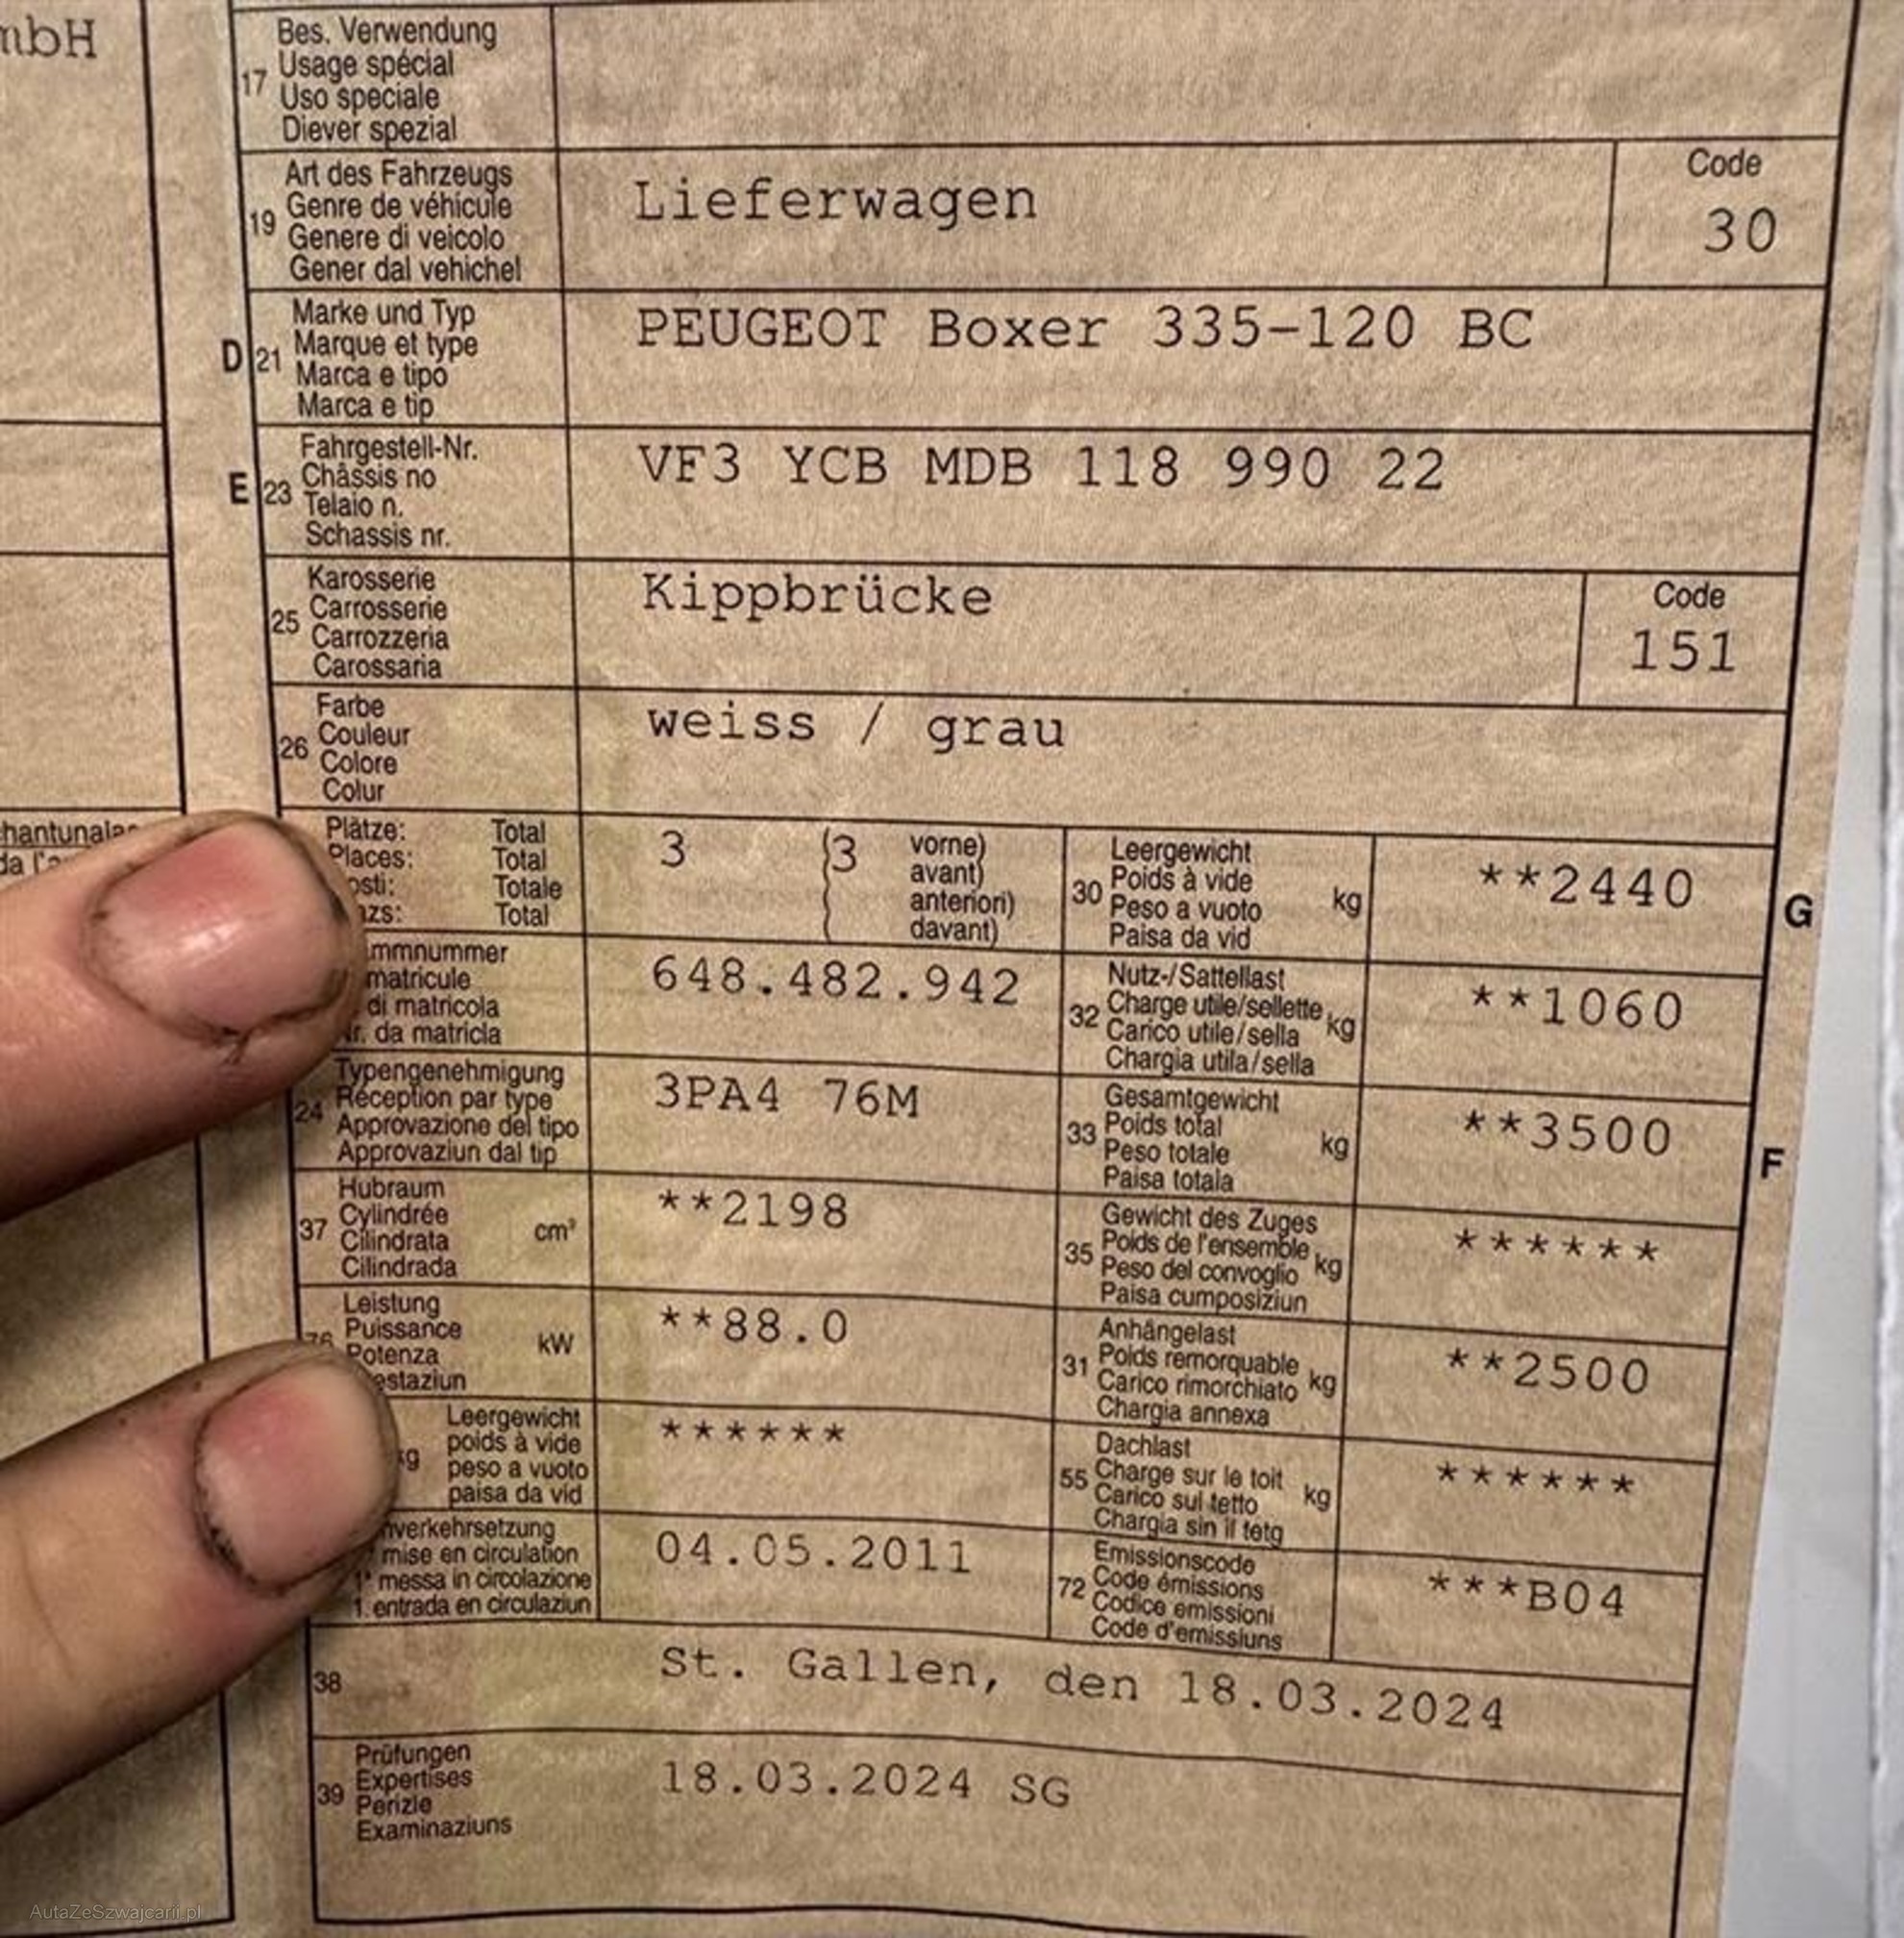 mbH
Bes. Verwendung
17 Usage spécial
Uso speciale
Diever spezial
Art des Fahrzeugs
19 Genre de véhicule
Genere di veicolo
Gener dal vehichel
Lieferwagen
Code
30
Marke und Typ
D 21 Marque et type
Marca e tipo
Marca e tip
PEUGEOT Boxer 335-120 BC
Fahrgestell-Nr.
E 23 Châssis no
Telaio n.
Schassis nr.
VF3 YCB MDB 118 990 22
Karosserie
25 Carrosserie
Carrozzeria
Carossaria
Kippbrücke
Code
151
Farbe
26 Couleur
Colore
Colur
weiss / grau
hantunala
da l'
Plätze: Total
Places: Total
osti: Totale
azs: Total
3 (3 vorne)
avant)
anteriori)
davant)
Leergewicht
30 Poids à vide kg
Peso a vuoto
Paisa da vid
**2440
G
mmnummer
matricule
di matricola
Nr. da matricla
648.482.942
Nutz-/Sattellast
32 Charge utile/sellette kg
Carico utile/sella
Chargia utila/sella
**1060
Typengenehmigung
24 Réception par type
Approvazione del tipo
Approvaziun dal tip
3PA4 76M
Gesamtgewicht
33 Poids total kg
Peso totale
Paisa totala
**3500
F
Hubraum
37 Cylindrée cm³
Cilindrata
Cilindrada
**2198
Gewicht des Zuges
35 Poids de l'ensemble kg
Peso del convoglio
Paisa cumposiziun
******
Leistung
76 Puissance kW
Potenza
estaziun
**88.0
Anhängelast
31 Poids remorquable kg
Carico rimorchiato
Chargia annexa
**2500
Leergewicht
poids à vide
kg peso a vuoto
paisa da vid
******
Dachlast
55 Charge sur le toit kg
Carico sul tetto
Chargia sin il tetg
******
nverkehrsetzung
mise en circulation
1ª messa in circolazione
1. entrada en circulaziun
04.05.2011
Emissionscode
72 Code émissions
Codice emissioni
Code d'emissiuns
***B04
38
St. Gallen, den 18.03.2024
Prüfungen
39 Expertises
Perizie
Examinaziuns
18.03.2024 SG
AutaZeSzwajcarii.pl